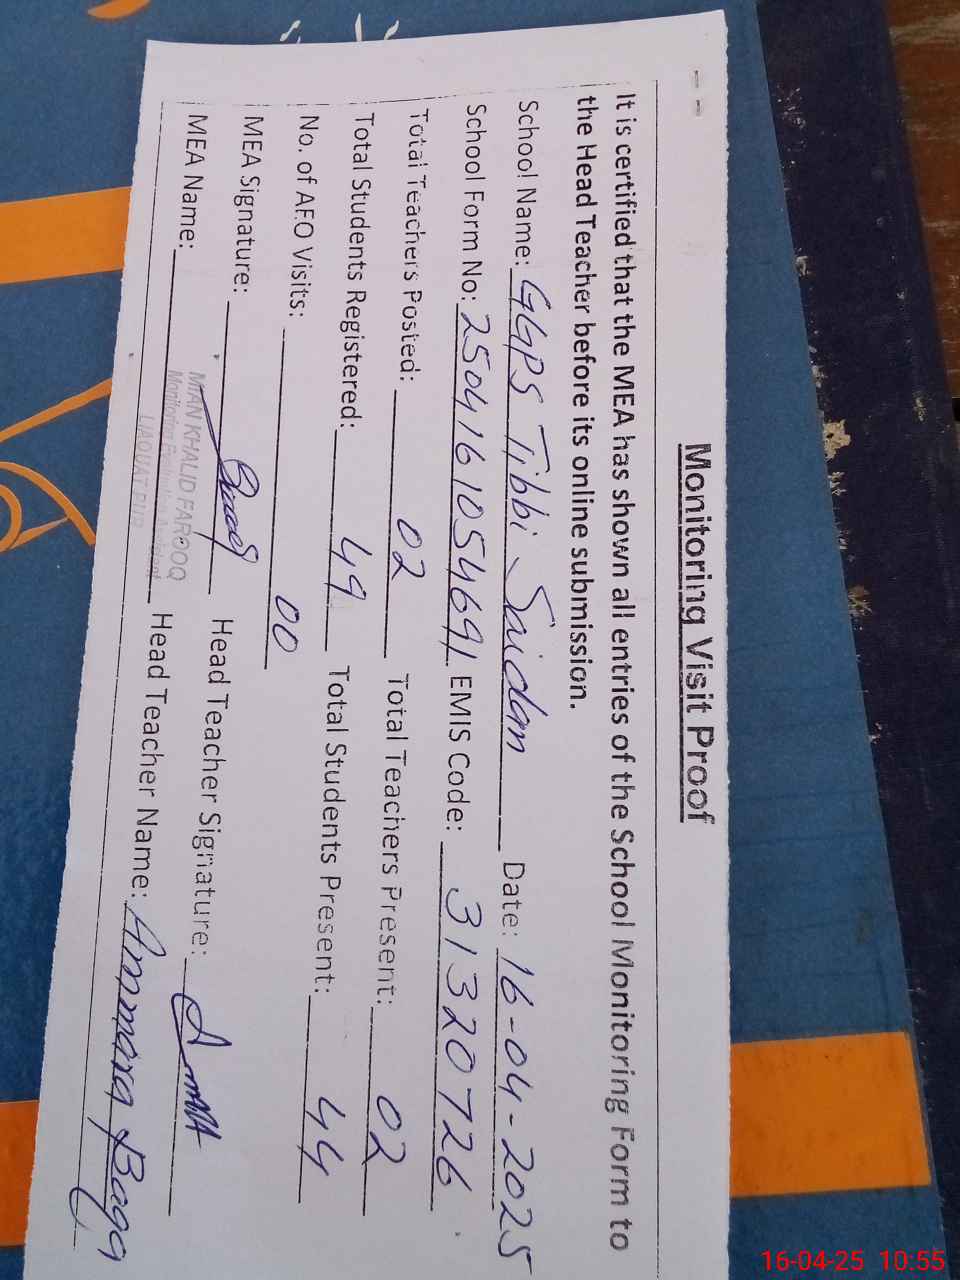 Monitoring Visit Proof
It is certified that the MEA has shown all entries of the School Monitoring Form to
the Head Teacher before its online submission.
School Name: GGPS Tibbi Saidan Date: 16-04-2025
School Form No: 2504161054691 EMIS Code: 31320726
Total Teachers Posted: 02 Total Teachers Present: 02
Total Students Registered: 49 Total Students Present: 44
No. of AEO Visits: 00
MEA Signature: Head Teacher Signature:
MEA Name: MIAN KHALID FAROOQ Head Teacher Name: Ammara Baqa
Monitoring Evaluation Assistant
LIAQUAT PUR
16-04-25 10:55